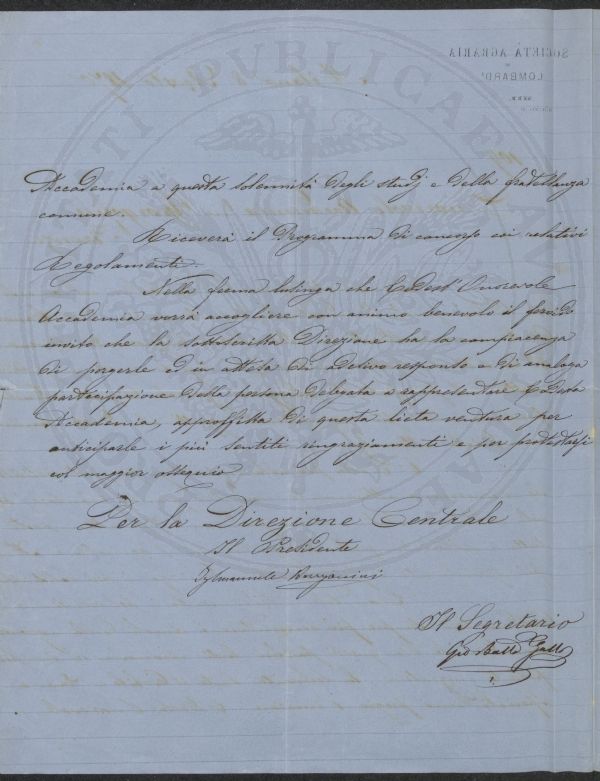 SOCIETÀ AGRARIA
DI
LOMBARDIA
PUBLICAE
Accademia a questa solennità degli studj e della fratellanza
comune.
Riceverà il Programma di concorso coi relativi
Regolamenti.
Nella ferma lusinga che Codest'Onorevole
Accademia vorrà accogliere con animo benevolo il fervido
invito che la sottoscritta Direzione ha la compiacenza
di porgerle ed in attesa di adesivo responso e di analoga
partecipazione della persona delegata a rappresentare Codesta
Accademia, approffitta di questa lieta ventura per
anticiparle i più sentiti ringraziamenti e per protestarsi
col maggior ossequio
Per la Direzione Centrale
Il Presidente
Il Segretario
Gio Batta Gallo